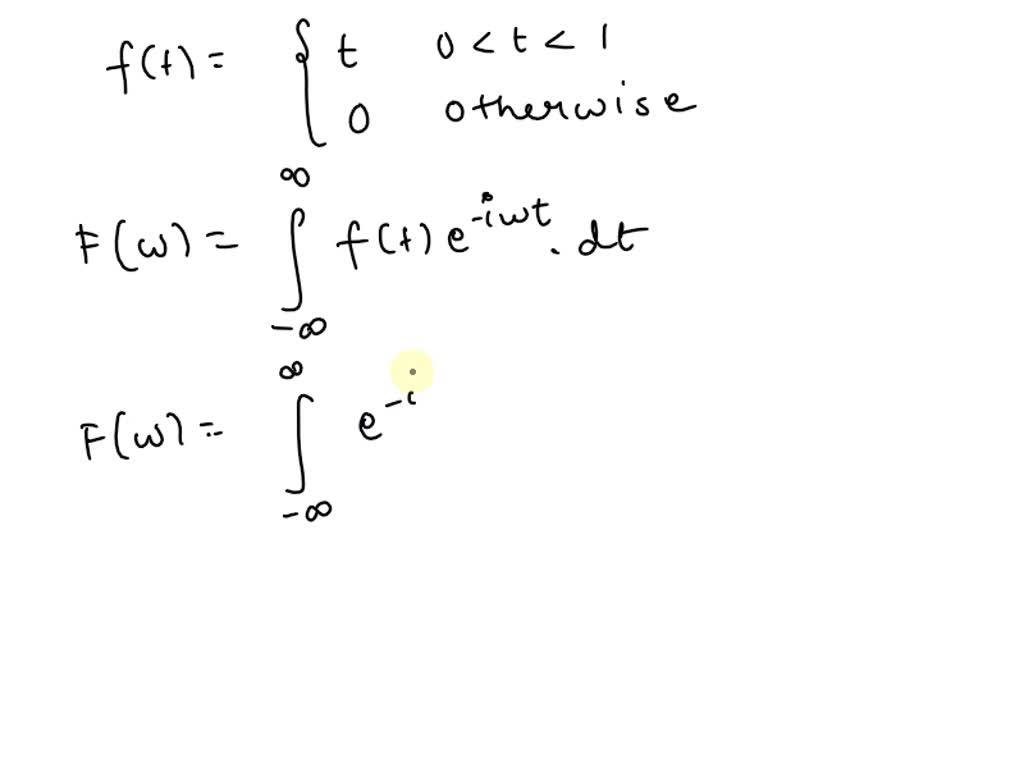 f(t) = { t 0 < t < 1
0 otherwise
F(ω) = ∫_{-∞}^{∞} f(t) e^{-iωt} . dt
F(ω) = ∫_{-∞}^{∞} e^{-i